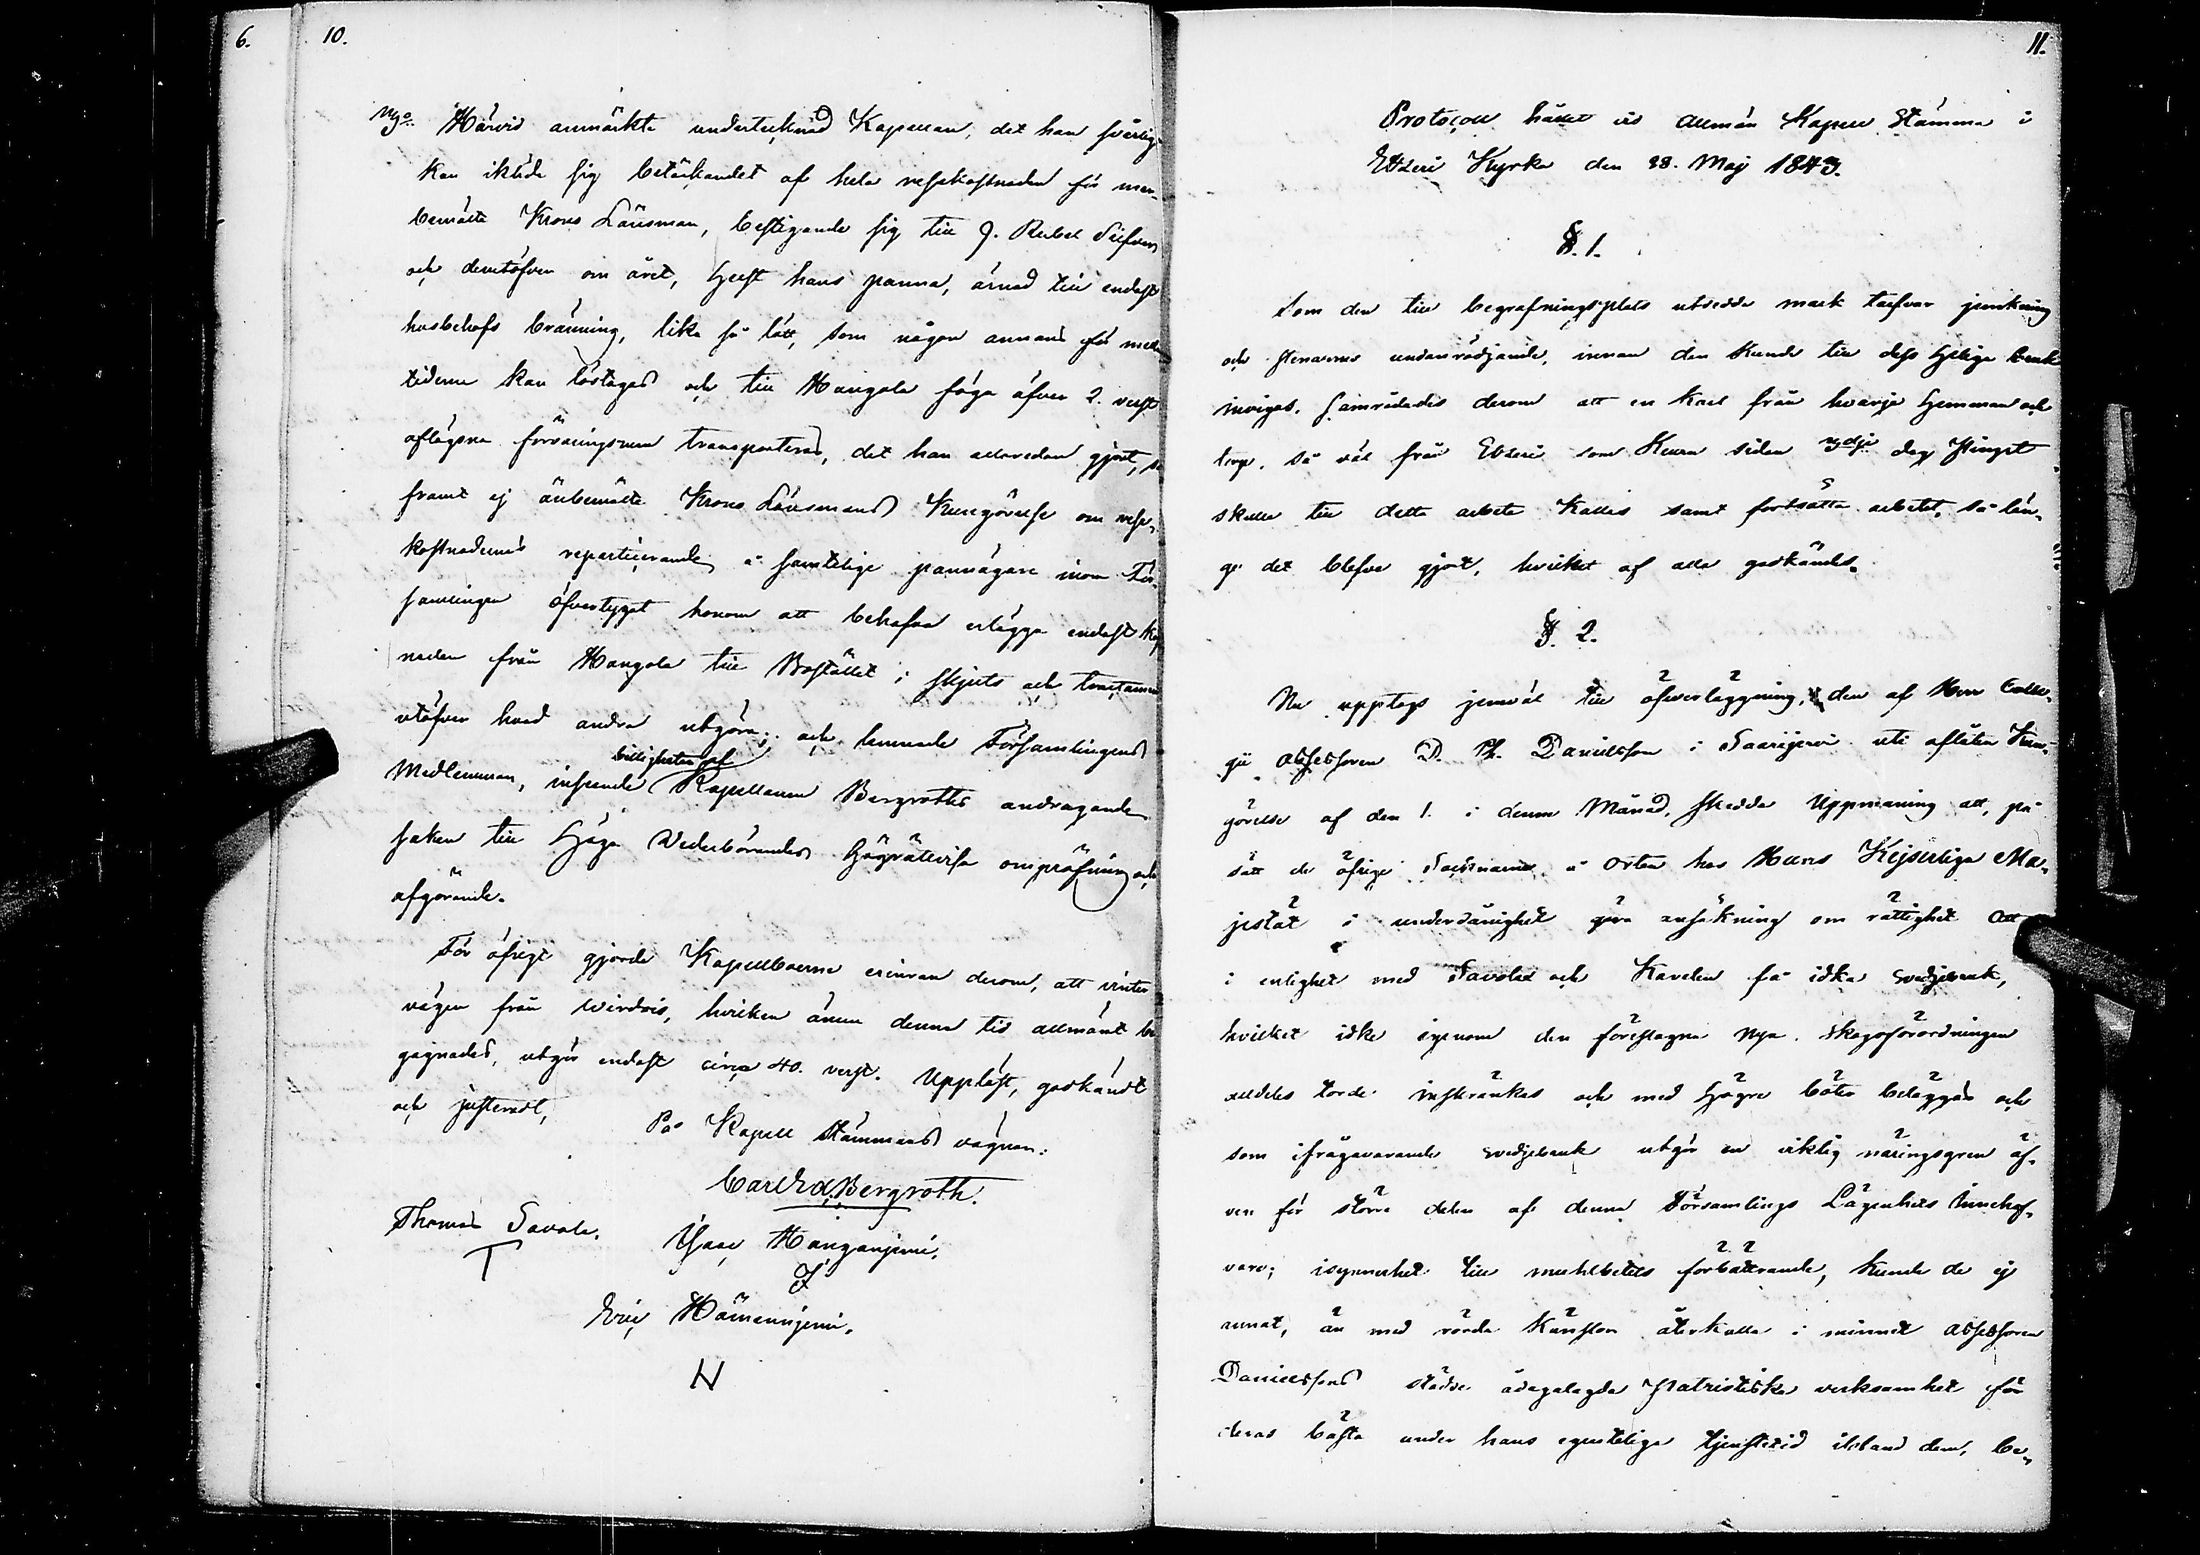 6.
10.
Härvid anmärkte undertecknad Kapellan, det han svårlig
kan ikläda sig betäckandet af hela resekostnaden för
bemälte Krono Länsman, bestigande sig till
och derutöfver om året, helst hans panna, ämnad till endast
husbehofs bränning, lika så lätt, som någon annans
tiderne kan löstagas och till Hangola föga öfver 2. verst
aflägsna förvaringsrum transporteras, det han allaredan gjort,
framt ej ånbemälte Krono Länsmans Kungörelse om rese-
kostnadernes reparticerande å samtelige pannägare inom För-
samlingen öfvertygat honom att behöfva erlägga endast
naden från Hangola till Bostället i skjuts och
utöfver hvad andra utgöra; och lemnade Församlingens
Medlemmar, inseende billigheten af Kapellanen Bergroths andragande
saken till Höga Vederbörandes Högrättvisa ompröfning och
afgörande.
För öfrigt gjorde Kapellboerne erinran derom, att vinter
vägen från Wirdois, hvilken ännu denna tid allmänt be
gagnades, utgör endast circa 40. verst. Uppläst, godkändt
och justeradt,
På Kapell Stämmans vägnar:
Carl Ed. Bergroth.
Thomas Savola. Isaac Hanganjemi.
Eric Hämeenjemi.
11.
Protocoll hållet vid allmän Kapell Stämma i
Etseri Kyrka den 28. Maj 1843.
§. 1.
Som den till begrafningsplats utsedda mark tarfvar jemkning
och stenarnes undanrödjande, innan den kunde till dess heliga bruk
invigas, samrådades derom att en karl från hvarje hemman och
torp, så väl från Etseri som sidan dag Pingst
skulle till detta arbete kallas samt fortsätta arbetet, så län-
ge det blefve gjort, hvilket af alla godkändes.
§. 2.
Nu upptogs jemväl till öfverläggning, den af Herr Colle-
gii Assessoren D. Danielsson i Saarijervi uti aflåten Kun-
görelse af den 1. i denne Månad, skedda Uppmaning att, på
sätt de öfrige Socknarne å orten hos Hans Kejserliga Ma-
jestät i underdånighet göra ansökning om rättighet att
i enlighet med Savolax och Karelen få idka svedjebruk,
hvilket idke igenom den föreslagna nya skogsförordningen
alldeles torde inskränkas och med högre böter beläggas och
som ifrågavarande svedjebruk utgör en viktig näringsgren äf-
ven för större delen af denna Församlings Lägenhets Innehaf-
vare; isynnerhet till muhlbetets förbättrande, kunde de ej
annat, än med rörda känslor återkalla i minnet Assessoren
Danielssons städse ådagalagda Patriotiska verksamhet för
deras bästa under hans egentliga tjenstetid ibland dem, be-